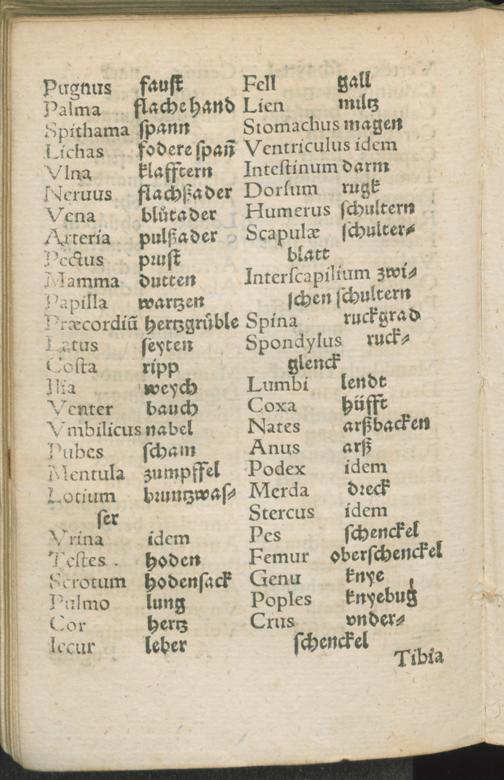 Pugnus faust
Palma flache hand
Spithama spann
Lichas fodere span̄
Vlna klafftern
Neruus flachßader
Vena blůtader
Arteria pulßader
Pectus prust
Mamma dutten
Papilla wartzen
Præcordiū hertzgrüble
Latus seyten
Costa ripp
Ilia weych
Venter bauch
Vmbilicus nabel
Pubes scham
Mentula zumpffel
Lotium bruntzwas⸗
ser
Vrina idem
Testes . hoden
Scrotum hodensack
Pulmo lung
Cor hertz
Iecur leber
Fell gall
Lien miltz
Stomachus magen
Ventriculus idem
Intestinum darm
Dorsum rugk
Humerus schultern
Scapulæ schulter⸗
blatt
Interscapilium zwi⸗
schen schultern
Spina ruckgrad
Spondylus ruck⸗
glenck
Lumbi lendt
Coxa hüfft
Nates arßbacken
Anus arß
Podex idem
Merda dreck
Stercus idem
Pes schenckel
Femur oberschenckel
Genu knye
Poples knyebug
Crus vnder⸗
schenckel
Tibia